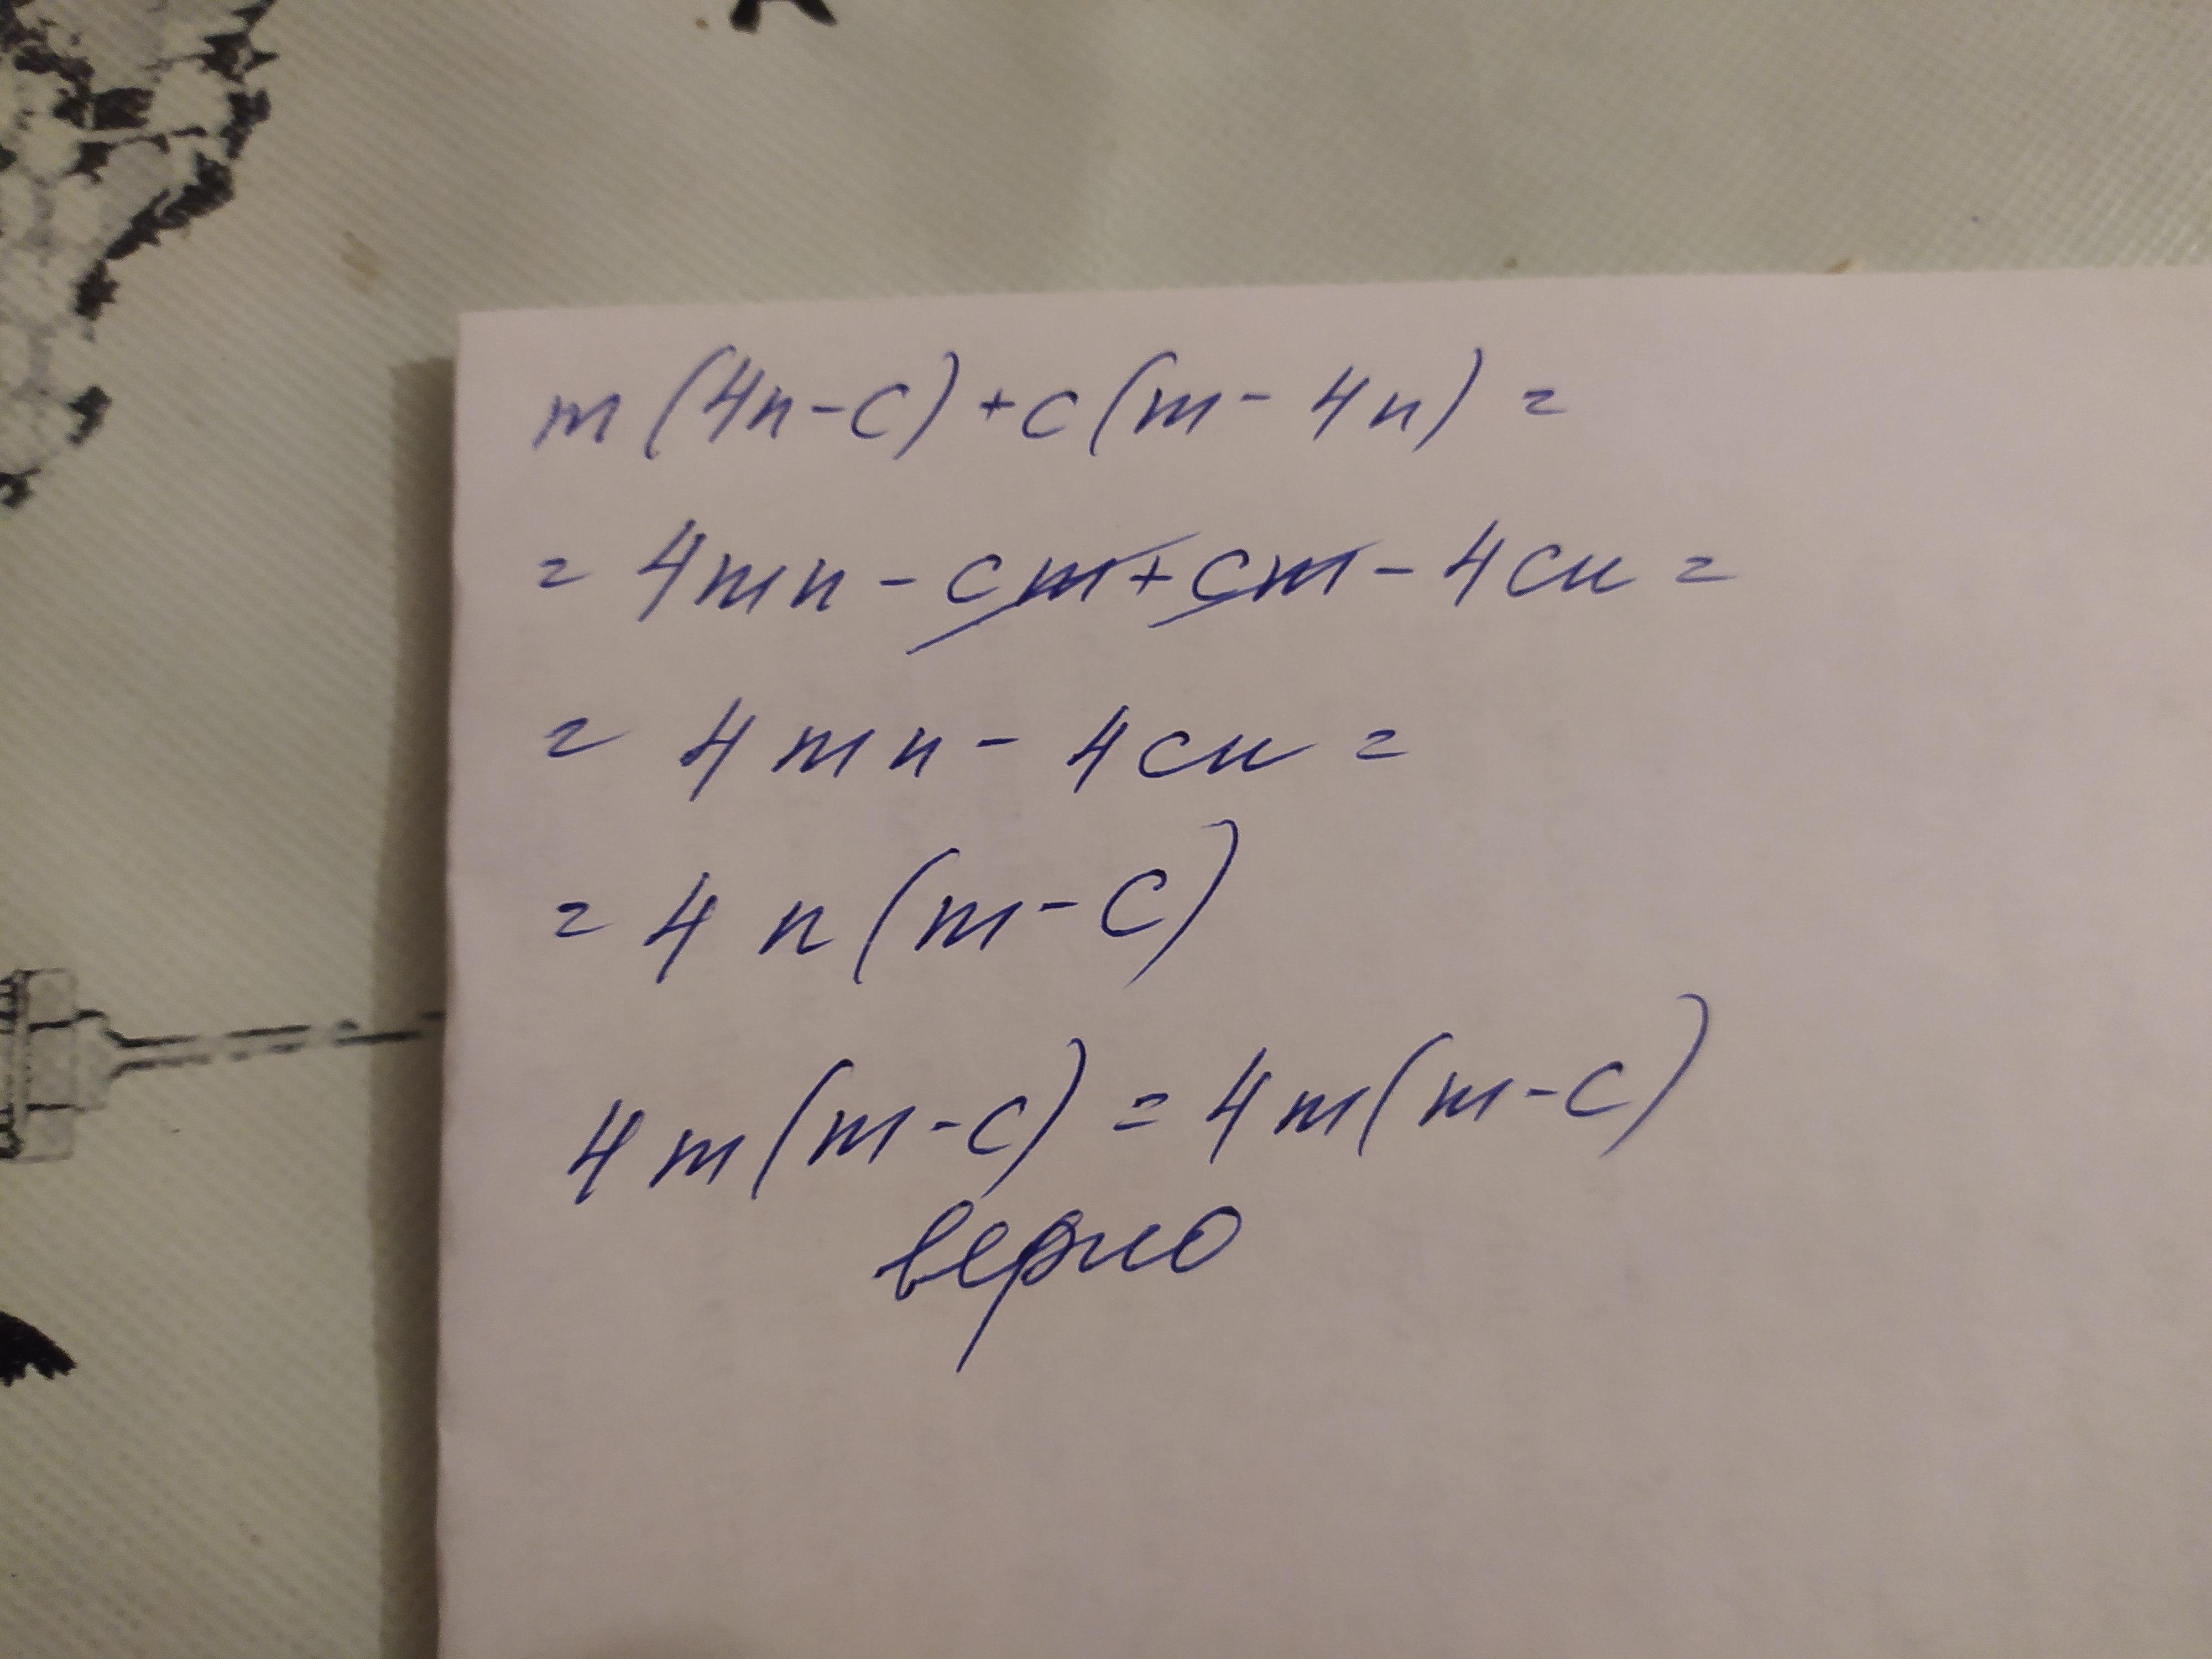 m(4n-c)+c(m-4n)=
=4mn-cm+cm-4cn=
=4mn-4cn=
=4n(m-c)
4m(m-c)=4m(m-c)
верно